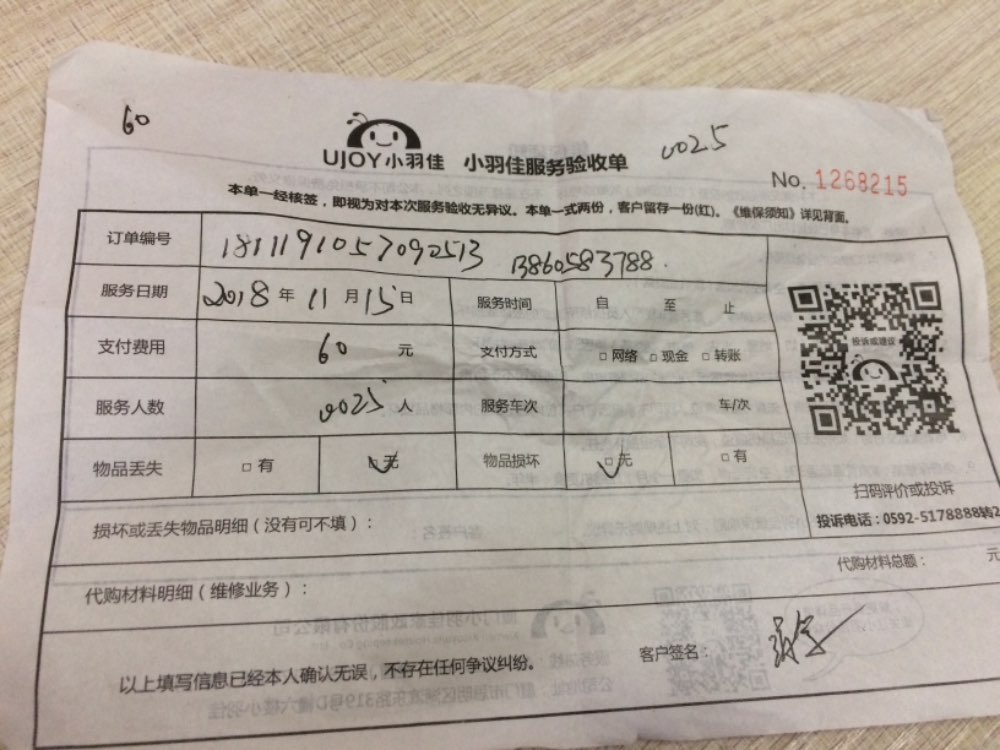 60
UJOY小羽佳 小羽佳服务验收单 0025
No. 1268215
本单一经核签，即视为对本次服务验收无异议。本单一式两份，客户留存一份(红)。《维保须知》详见背面。
订单编号 1811191057090513 13860583788.
服务日期 2018 年 11 月 15 日 服务时间 自 至 止
支付费用 60 元 支付方式 □网络 □现金 □转账
投诉或建议
服务人数 0025 人 服务车次 车/次
物品丢失 □有 □无 物品损坏 □无 □有
扫码评价或投诉
损坏或丢失物品明细（没有可不填）：
投诉电话：0592-5178888转2
代购材料明细（维修业务）：
代购材料总额： 元
以上填写信息已经本人确认无误，不存在任何争议纠纷。 客户签名：